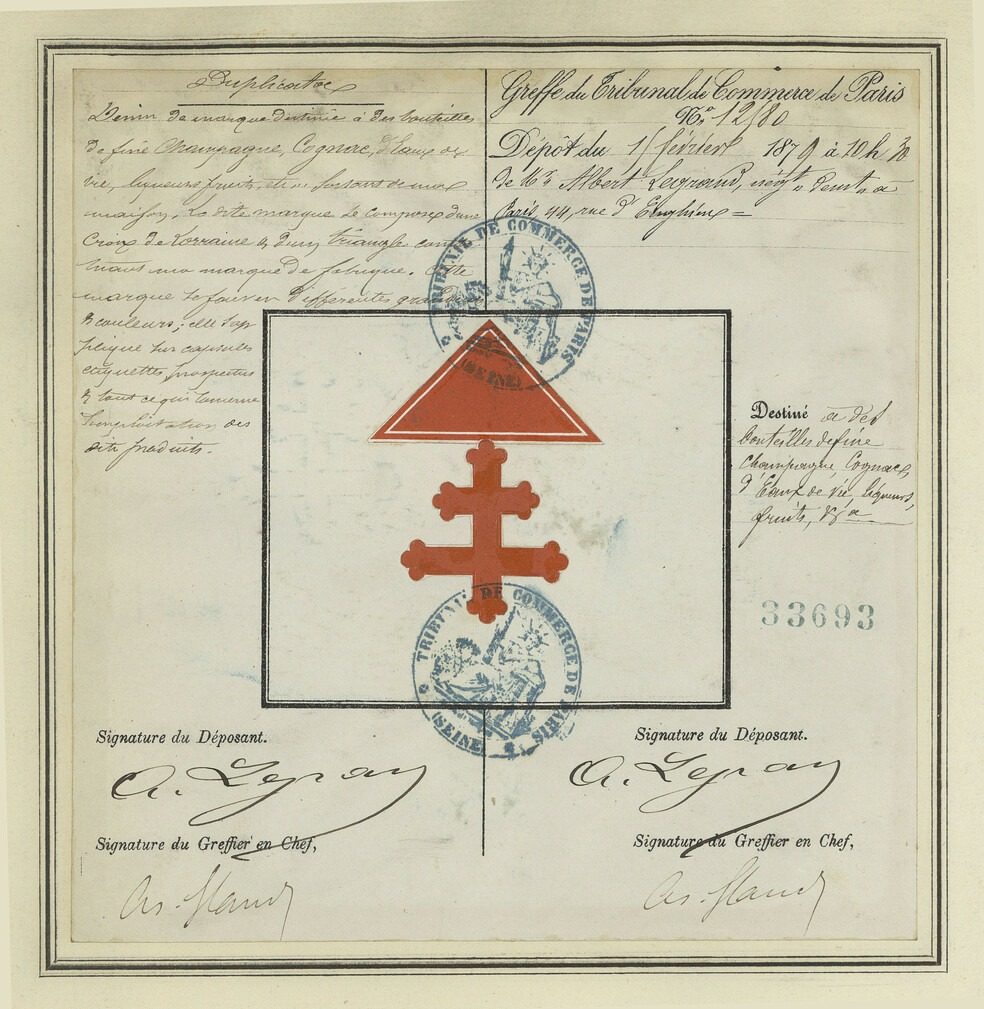 Duplicata
Dessin de marque destinée à des bouteilles
de fine Champagne, Cognac, d'Eaux de
vie, liqueurs, fruits, etc. sortant de ma
maison. La dite marque se compose d'une
Croix de Lorraine & d'un triangle conte
nant ma marque de fabrique. Cette
marque se fait en différentes grandeurs
& couleurs; elle s'ap
plique sur capsules
étiquettes, prospectus
& tout ce qui concerne
l'exploitation des
dits produits.
Greffe du Tribunal de Commerce de Paris
No. 12180
Dépôt du 1er février 1879 à 10h 30
de Mr. Albert Legrand, négt. demt. à
Paris 44, rue d'Enghien =
TRIBUNAL DE COMMERCE DE PARIS
(SEINE)
Destiné à des
bouteilles de fine
Champagne, Cognac,
d'Eaux de vie, liqueurs,
fruits, &a
33693
TRIBUNAL DE COMMERCE DE PARIS
(SEINE)
Signature du Déposant.
Signature du Déposant.
A. Legran
A. Legran
Signature du Greffier en Chef,
Signature du Greffier en Chef,